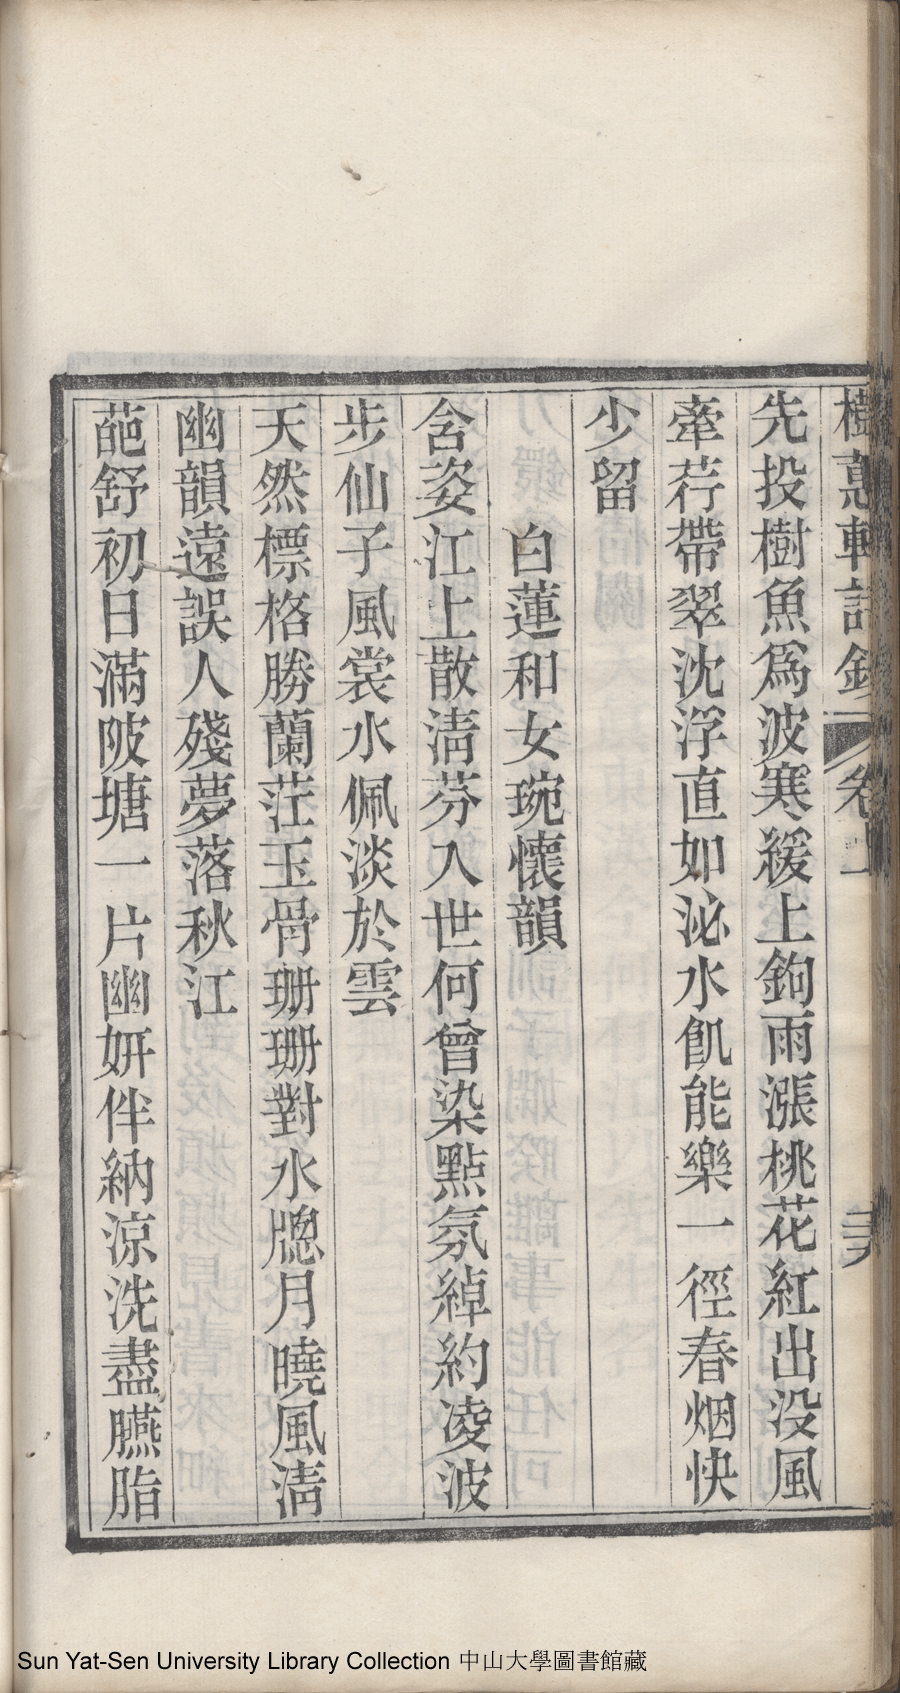 先投樹魚爲波寒緩上鉤雨漲桃花紅出沒風
牽荇帶翠沈浮直如泌水飢能樂一徑春烟快
少留
白蓮和女琬懷韻
含姿江上散淸芬入世何曾染點氛綽約凌波
步仙子風裳水佩淡於雲
天然標格勝蘭茳玉骨珊珊對水牕月曉風淸
幽韻遠誤人殘夢落秋江
葩舒初日滿陂塘一片幽妍伴納涼洗盡臙脂
Sun Yat-Sen University Library Collection 中山大學圖書館藏